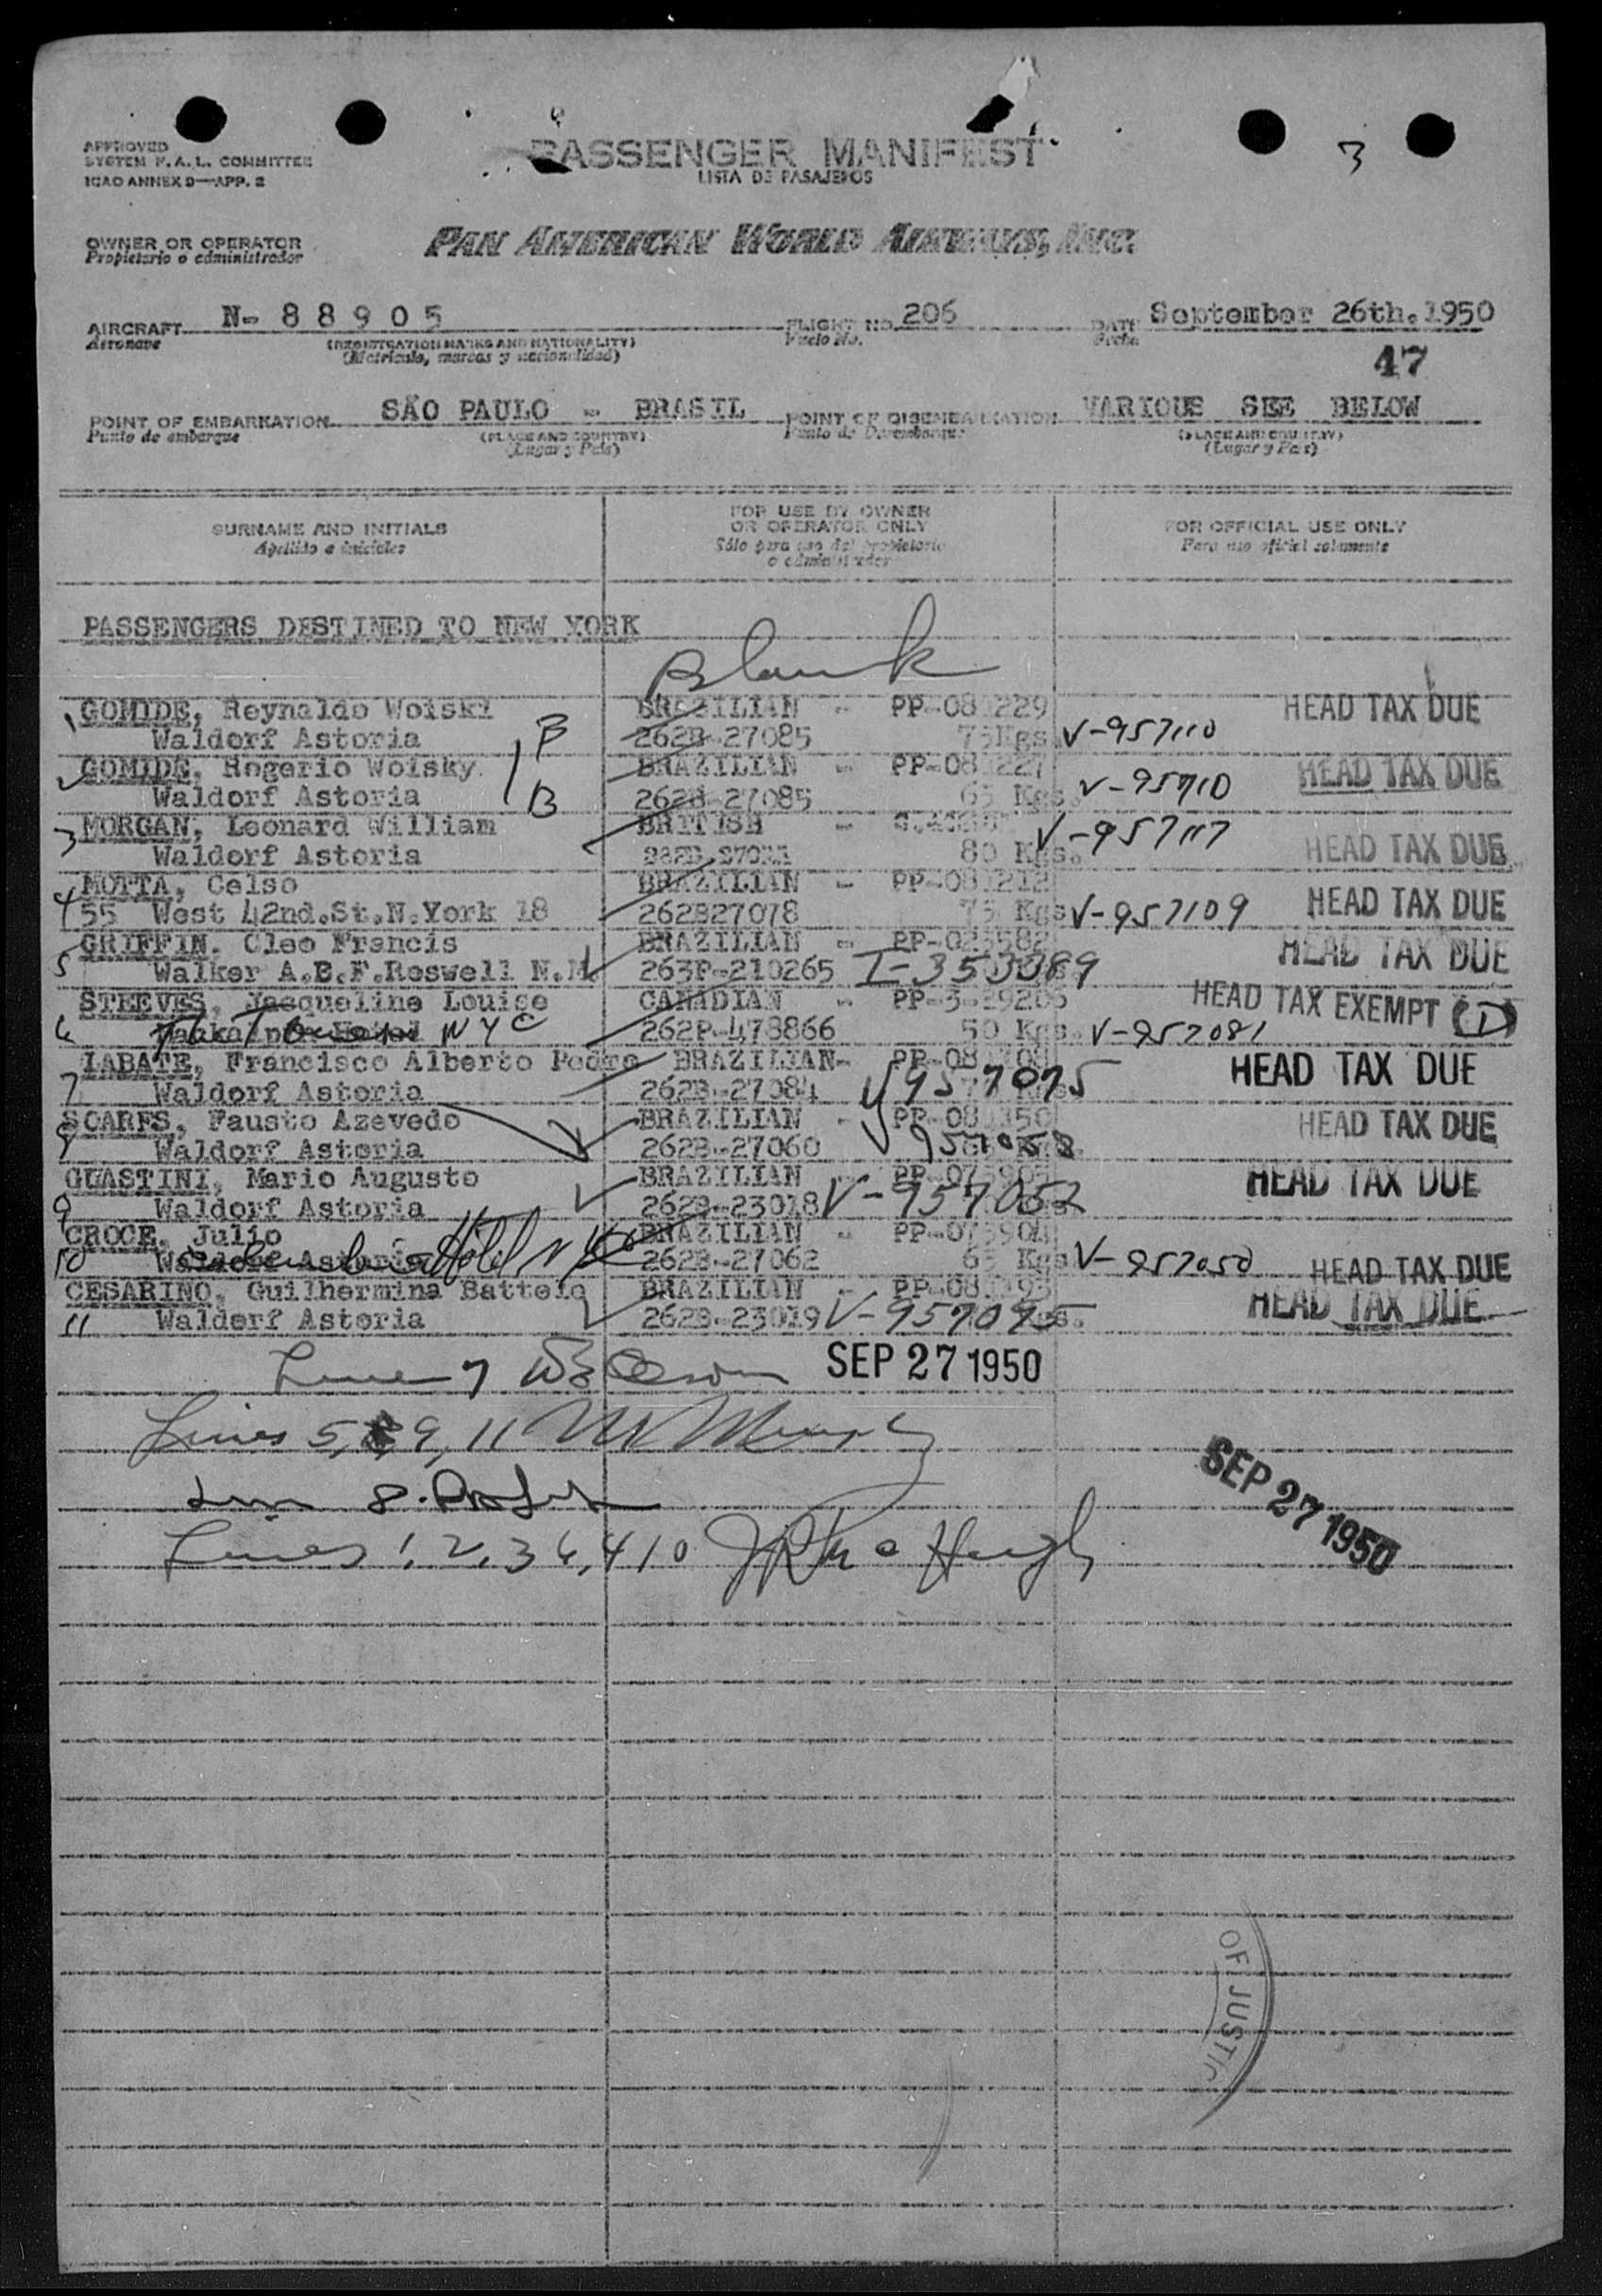 3
APPROVED
SYSTEM F.A.L. COMMITTEE
ICAO ANNEX 9—APP. 2
PASSENGER MANIFEST
LISTA DE PASAJEROS
OWNER OR OPERATOR
Propietario o administrador
PAN AMERICAN WORLD AIRWAYS, INC.
AIRCRAFT N- 8 8 9 0 5 FLIGHT NO. 206 DATE September 26th.1950
Aeronave (REGISTRATION MARKS AND NATIONALITY) Vuelo No. Fecha
(Matrícula, marcas y nacionalidad)
47
POINT OF EMBARKATION SÃO PAULO - BRASIL POINT OF DISEMBARKATION VARIOUS SEE BELOW
Punto de embarque (PLACE AND COUNTRY) Punto de Desembarque (PLACE AND COUNTRY)
(Lugar y País) (Lugar y País)
SURNAME AND INITIALS FOR USE BY OWNER OR OPERATOR ONLY FOR OFFICIAL USE ONLY
Apellido e iniciales Sólo para uso del propietario o administrador Para uso oficial solamente
PASSENGERS DESTINED TO NEW YORK
Blank
1 GOMIDE, Reynaldo Woiski BRAZILIAN - PP-081229 HEAD TAX DUE
Waldorf Astoria B 262B-27085 75Kgs V-957110
GOMIDE, Rogerio Woisky BRAZILIAN - PP-081227 HEAD TAX DUE
Waldorf Astoria B 262B-27085 65 Kgs. V-95710
3 MORGAN, Leonard William BRITISH - V-957117
Waldorf Astoria 80 Kgs. HEAD TAX DUE
MOTTA, Celso BRAZILIAN - PP-081212
4 55 West 42nd.St.N.York 18 262B27078 75 Kgs V-957109 HEAD TAX DUE
GRIFFIN, Cleo Francis BRAZILIAN - PP-023582 HEAD TAX DUE
5 Walker A.B.F.Roswell N.M 263P-210265 I-353389
STEEVES, Jacqueline Louise CANADIAN - PP-3-29206 HEAD TAX EXEMPT (D)
6 NYC 262P-478866 50 Kgs. V-957081
LABATE, Francisco Alberto Pedro BRAZILIAN- HEAD TAX DUE
7 Waldorf Astoria 262B-27084 V957075
SOARES, Fausto Azevedo BRAZILIAN - PP-081350 HEAD TAX DUE
Waldorf Astoria 262B-27060 V957058
GUASTINI, Mario Augusto BRAZILIAN HEAD TAX DUE
9 Waldorf Astoria 262B-23018 V-957052
CROCE, Julio BRAZILIAN - PP-075904
10 Waldorf Astoria Hotel NYC 262B-27062 65 Kgs V-957050 HEAD TAX DUE
CESARINO, Guilhermina Sattelo BRAZILIAN - PP-081193 HEAD TAX DUE
11 Waldorf Astoria 262B-23019 V-957095
Line 7 SEP 27 1950
Lines 5, 9, 11 Murphy
SEP 27 1950
Line 8.
Lines 1, 2, 3 6, 4 10
OF JUSTIC